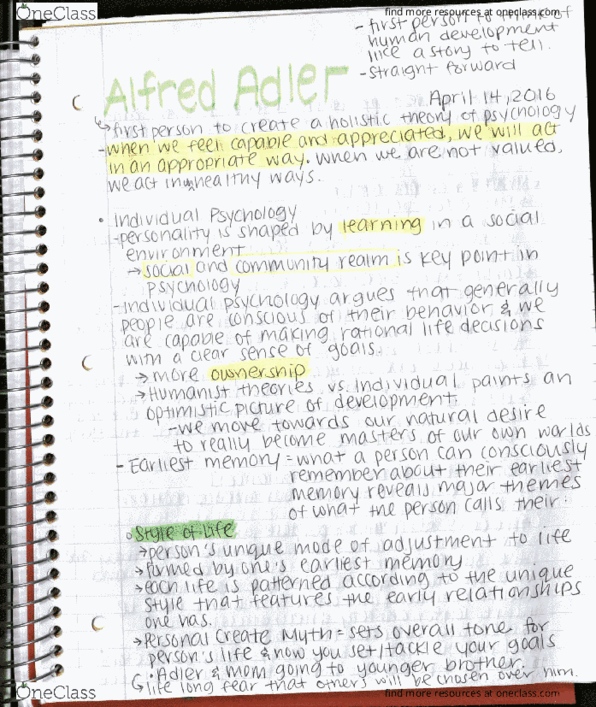 OneClass
find more resources at oneclass.com
- first person to of
human development
like a story to tell.
- straight forward
Alfred Adler
April 14, 2016
↳ first person to create a holistic theory of psychology
- when we feel capable and appreciated, we will act
in an appropriate way. When we are not valued,
we act in unhealthy ways.
• Individual Psychology
- personality is shaped by learning in a social
environment
→ social and community realm is key point in
psychology
- Individual psychology argues that generally
people are conscious of their behavior & we
are capable of making rational life decisions
with a clear sense of goals.
→ more ownership
→ Humanist theories vs. Individual paints an
optimistic picture of development.
- we move towards our natural desire
to really become masters of our own worlds
- Earliest memory = what a person can consciously
remember about their earliest
memory reveals major themes
of what the person calls their:
◦ Style of Life
→ person's unique mode of adjustment to life
→ formed by one's earliest memory
→ each life is patterned according to the unique
style that features the early relationships
one has.
→ Personal Create Myth = sets overall tone for
person's life & how you set/tackle your goals
• Adler & mom going to younger brother.
↳ life long fear that others will be chosen over him.
OneClass
find more resources at oneclass.com